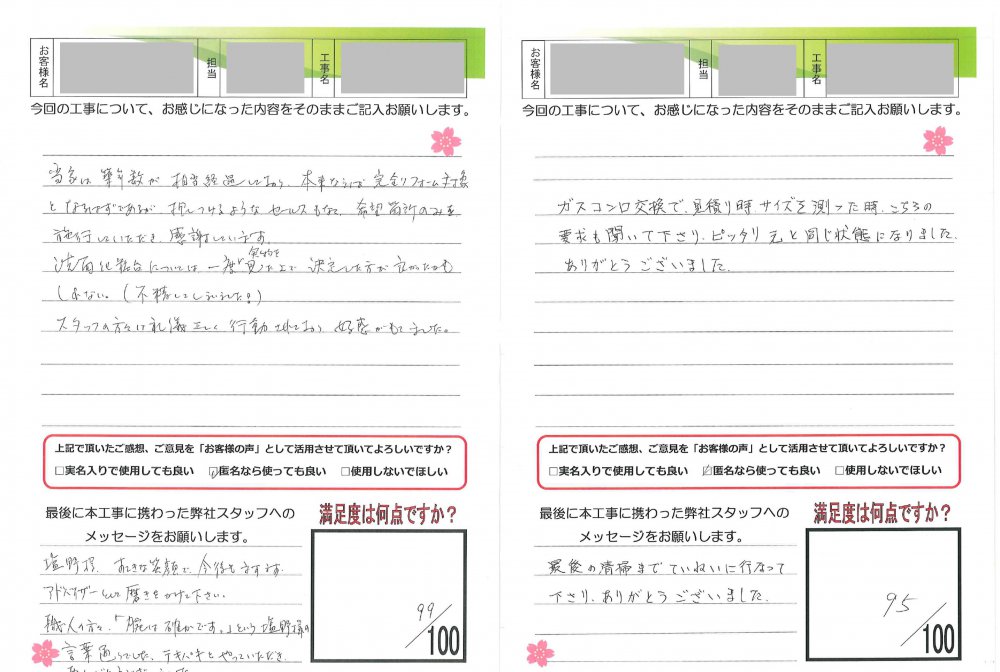 お客様名
担当
工事名
今回の工事について、お感じになった内容をそのままご記入お願いします。
当家は築年数が相当経過しており、本来ならば完全リフォーム対象
となるはずであるが、押しつけるようなセールスもなく、希望箇所のみを
施行していただき、感謝しています。
洗面化粧台については、一度実物を見た上で決定した方が良かったかも
しれない。(不精してしまいました!)
スタッフの方々は礼儀正しく行動されており、好感がもてました。
上記で頂いたご感想、ご意見を「お客様の声」として活用させて頂いてよろしいですか?
□実名入りで使用しても良い ☑匿名なら使っても良い □使用しないでほしい
最後に本工事に携わった弊社スタッフへの
メッセージをお願いします。
塩野様、すてきな笑顔で、今後もますます
アドバイザーとして磨きをかけて下さい。
職人の方々、「腕は確かです。」という塩野様の
言葉通りでした。テキパキとやっていただき、
満足度は何点ですか?
99/100
お客様名
担当
工事名
今回の工事について、お感じになった内容をそのままご記入お願いします。
ガスコンロ交換で、見積り時サイズを測った時、こちらの
要求も聞いて下さり、ピッタリ元と同じ状態になりました。
ありがとうございました。
上記で頂いたご感想、ご意見を「お客様の声」として活用させて頂いてよろしいですか?
□実名入りで使用しても良い ☑匿名なら使っても良い □使用しないでほしい
最後に本工事に携わった弊社スタッフへの
メッセージをお願いします。
最後の清掃までていねいに行なって
下さり、ありがとうございました。
満足度は何点ですか?
95/100